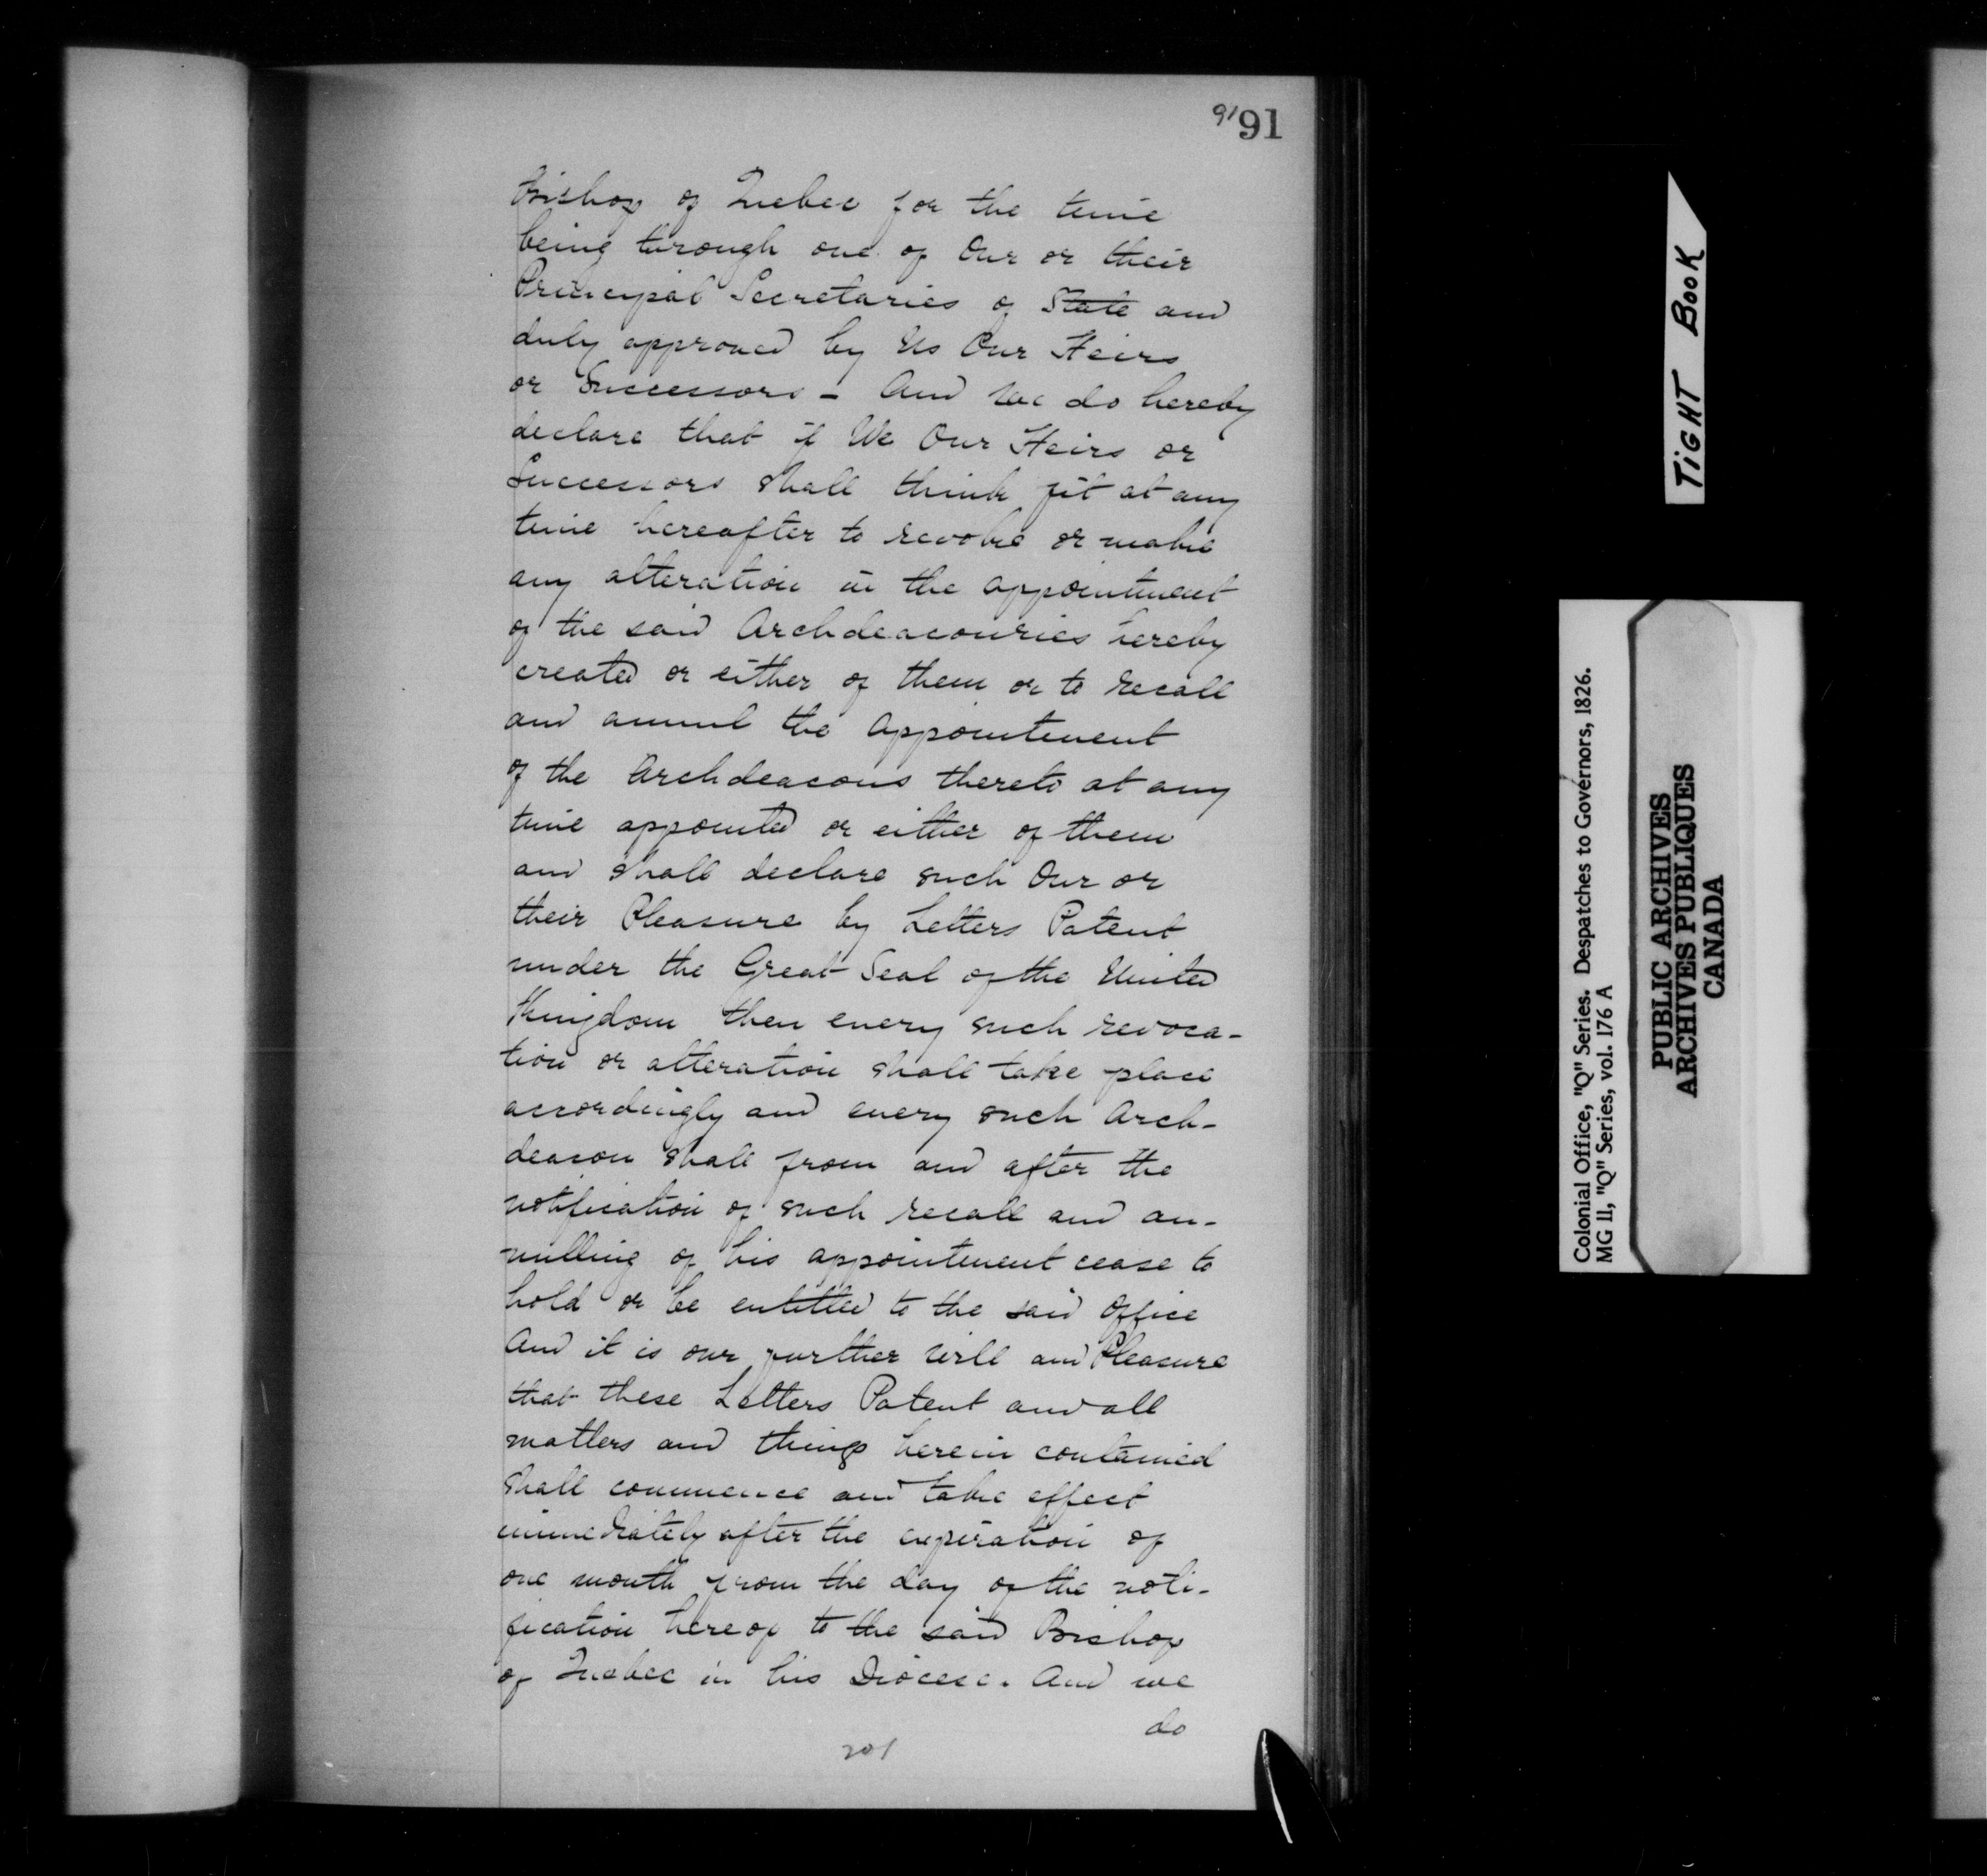 91 91
Bishop of Quebec for the time
being through one of Our or their
Principal Secretaries of State and
duly approved by Us Our Heirs
or Successors - And We do hereby
declare that if We Our Heirs or
Successors shall think fit at any
time hereafter to revoke or make
any alteration in the appointment
of the said Archdeaconries hereby
created or either of them or to recall
and annul the appointment
of the Archdeacons thereto at any
time appointed or either of them
and shall declare such Our or
their Pleasure by Letters Patent
under the Great Seal of the United
Kingdom then every such revoca-
tion or alteration shall take place
accordingly and every such Arch-
deacon shall from and after the
notification of such recall and an-
nulling of his appointment cease to
hold or be entitled to the said Office
And it is our further Will and Pleasure
that these Letters Patent and all
matters and things herein contained
shall commence and take effect
immediately after the expiration of
one month from the day of the noti-
fication hereof to the said Bishop
of Quebec in his Diocese. And we
do
201
TIGHT BOOK
Colonial Office, "Q" Series. Despatches to Governors, 1826.
MG 11, "Q" Series, vol. 176 A
PUBLIC ARCHIVES
ARCHIVES PUBLIQUES
CANADA